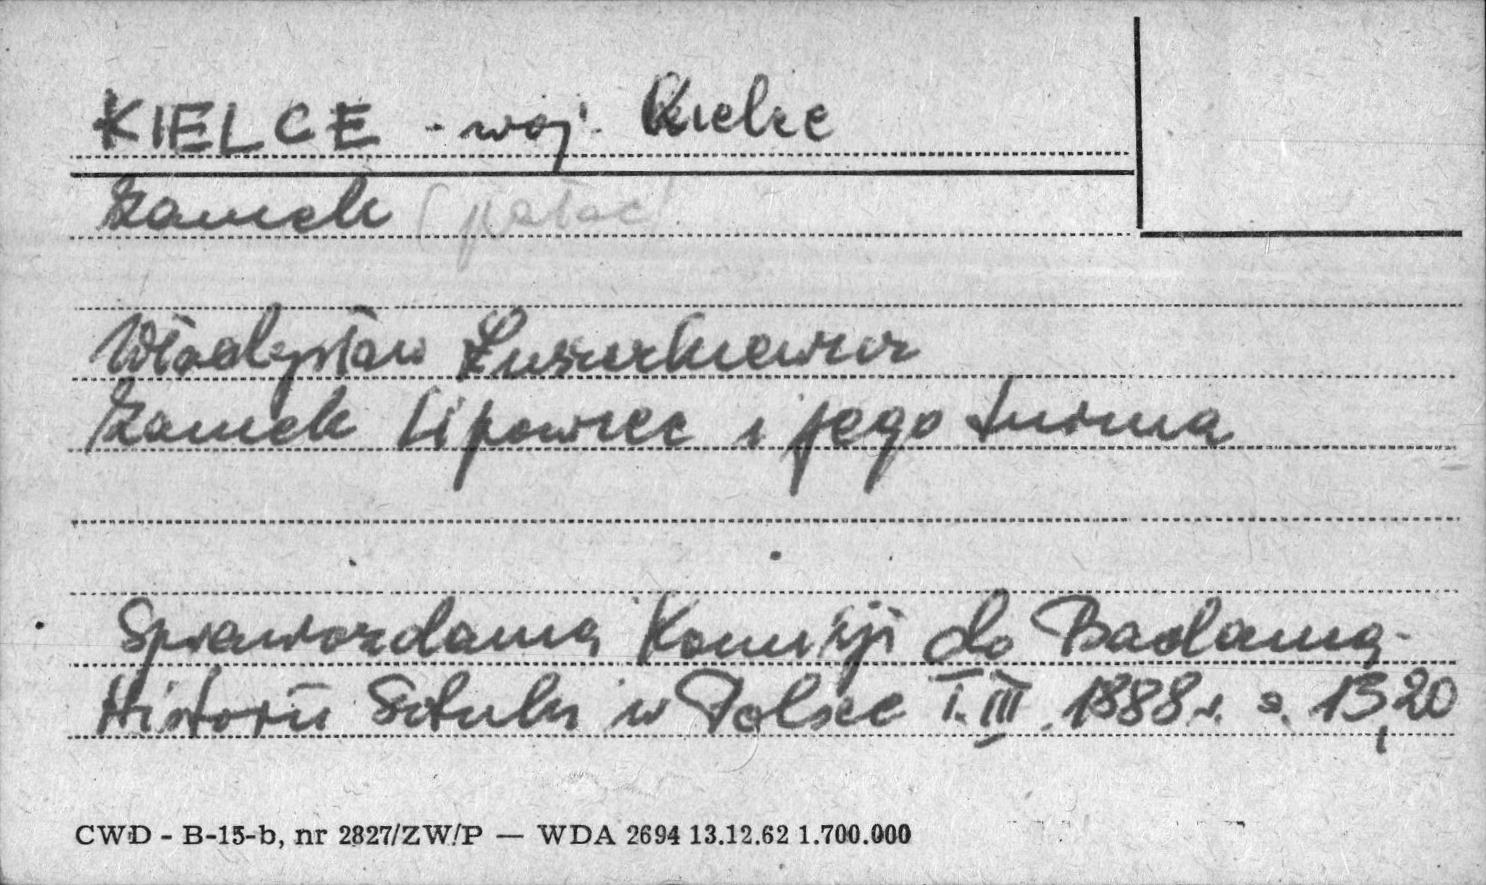 KIELCE - woj. Kielce
Zamek (pałac)
Władysław Łuszczkiewicz
Zamek Lipowiec i jego turma
Sprawozdania Komisji do Badania
Historii Sztuki w Polsce T. III. 1888 r. s. 15,20
CWD - B-15-b, nr 2827/ZW/P — WDA 2694 13.12.62 1.700.000